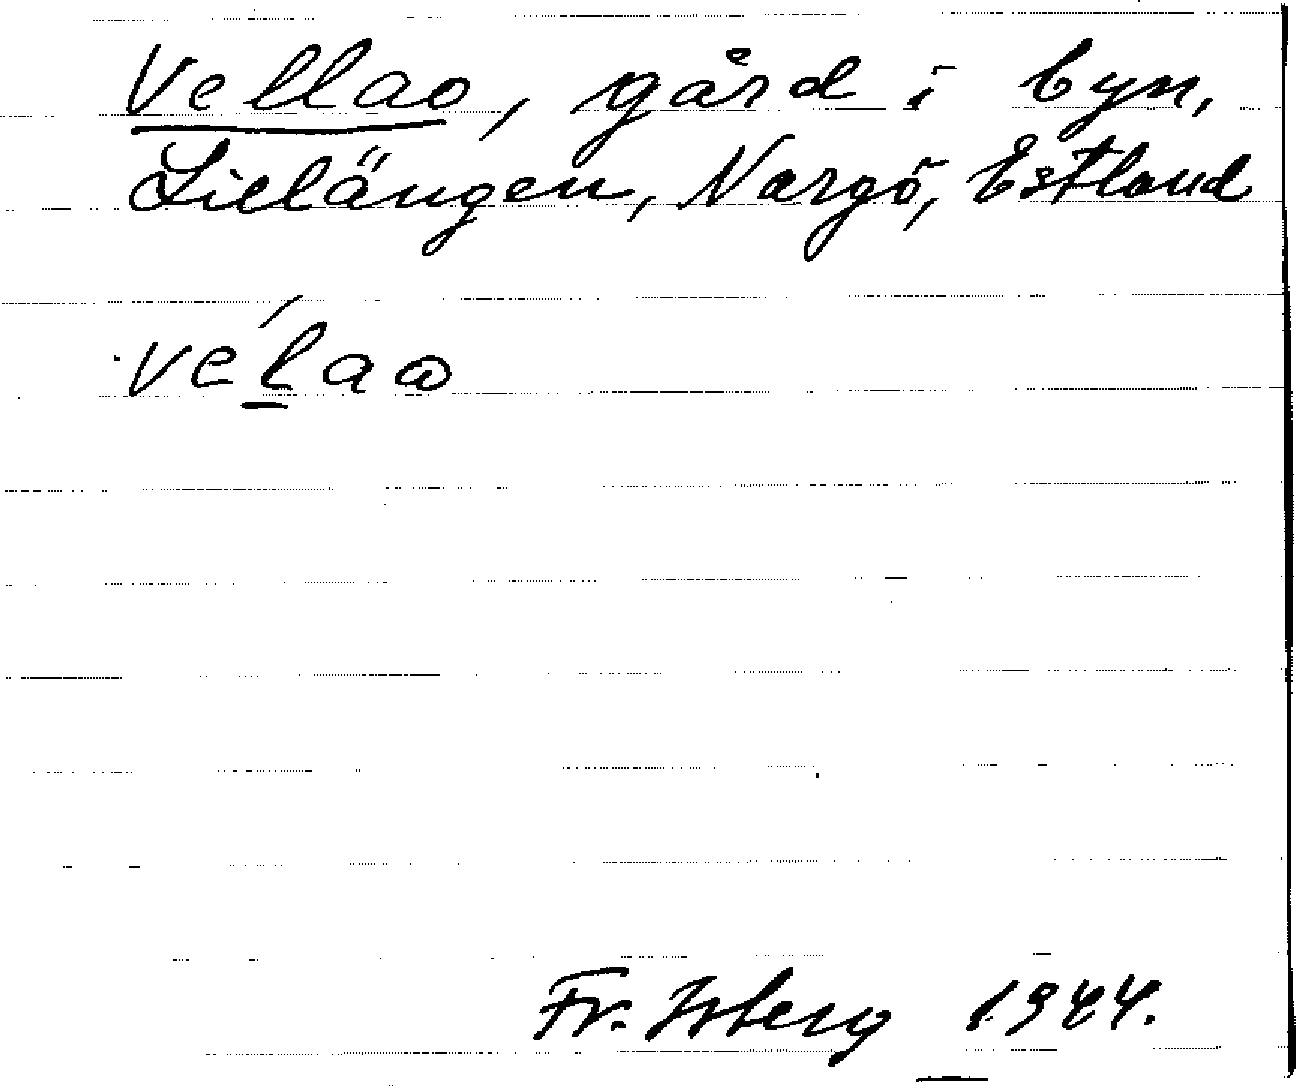 Vellao, gård i byn,
Lillängen, Nargö, Estland
vélaꙍ
Fr. Isberg 1944.